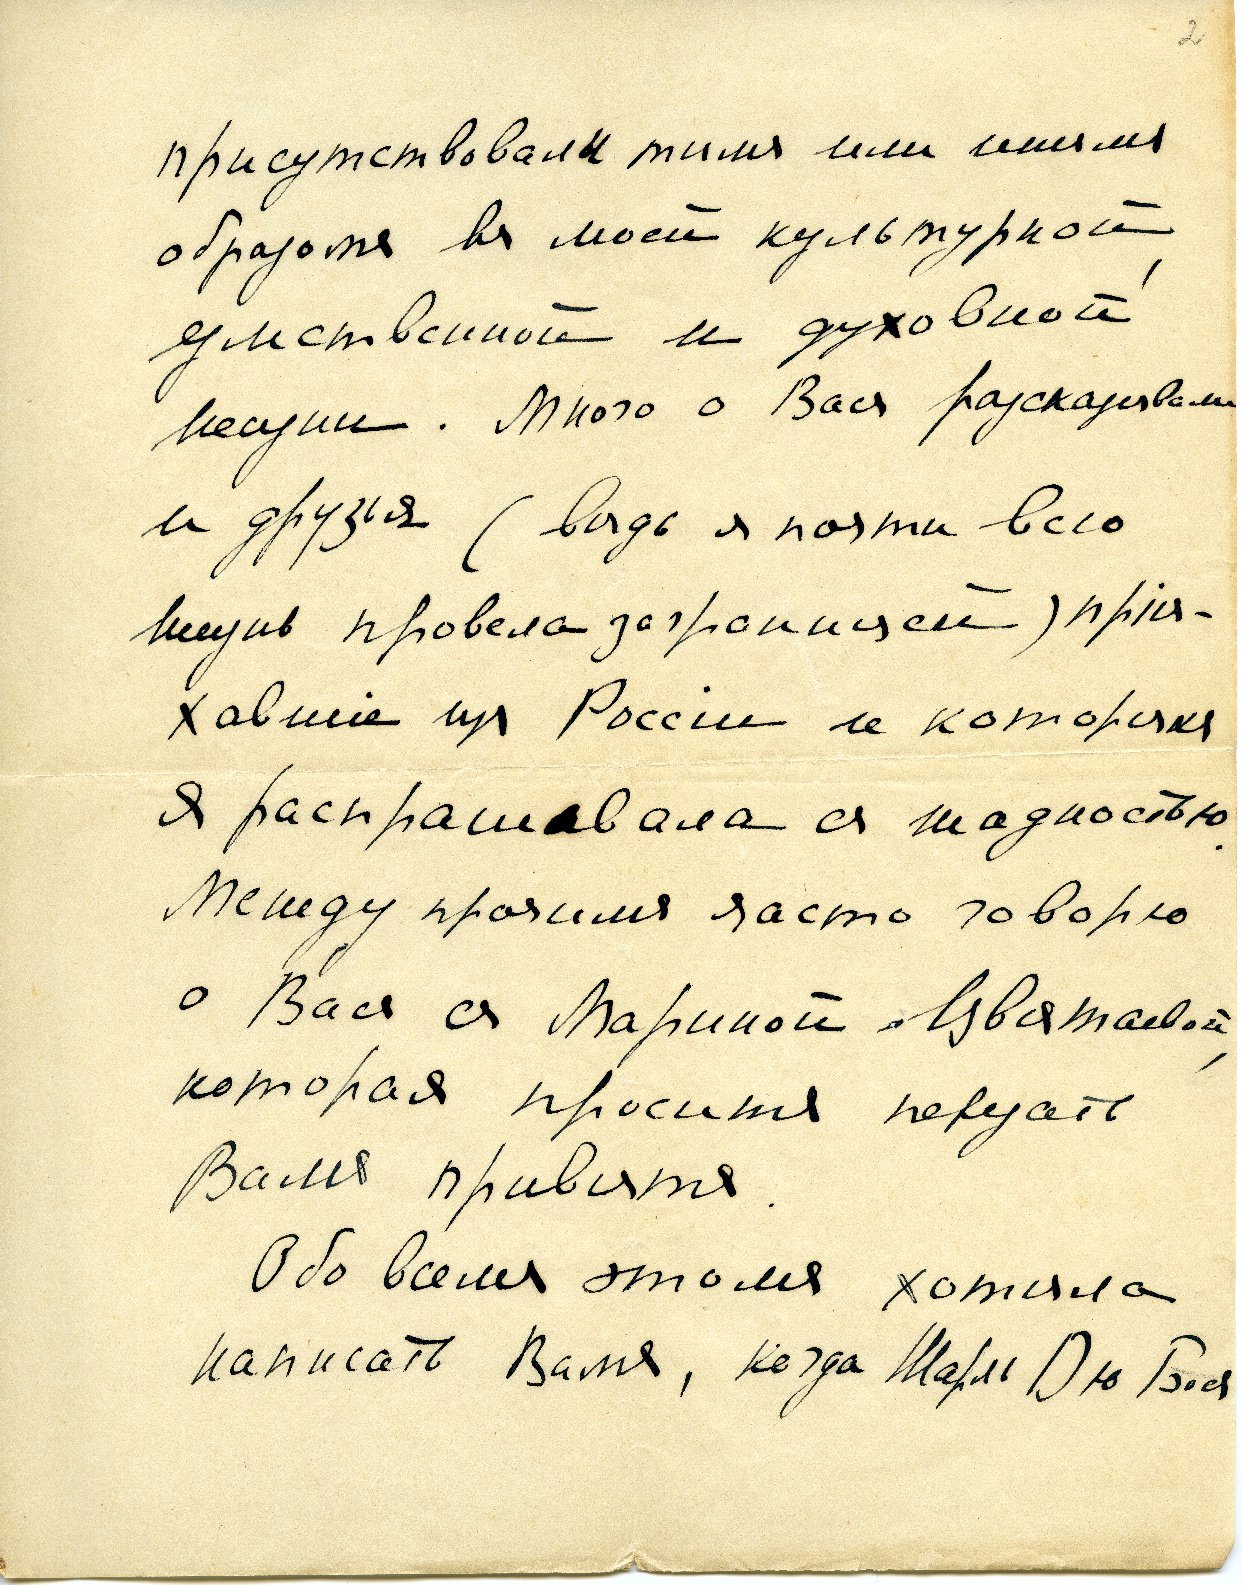 2
присутствовали тѣмъ или инымъ
образомъ въ моей культурной,
умственной и духовной
жизни. Много о Васъ разсказывали
и друзья (вѣдь я почти всю
жизнь провела заграницей) пріѣ-
хавшіе изъ Россіи и которыхъ
я распрашивала съ жадностью.
Между прочимъ часто говорю
о Васъ съ Мариной Цвѣтаевой,
которая проситъ передать
Вамъ привѣтъ.
Обо всемъ этомъ хотѣла
написать Вамъ, когда Шарль Дю Босъ